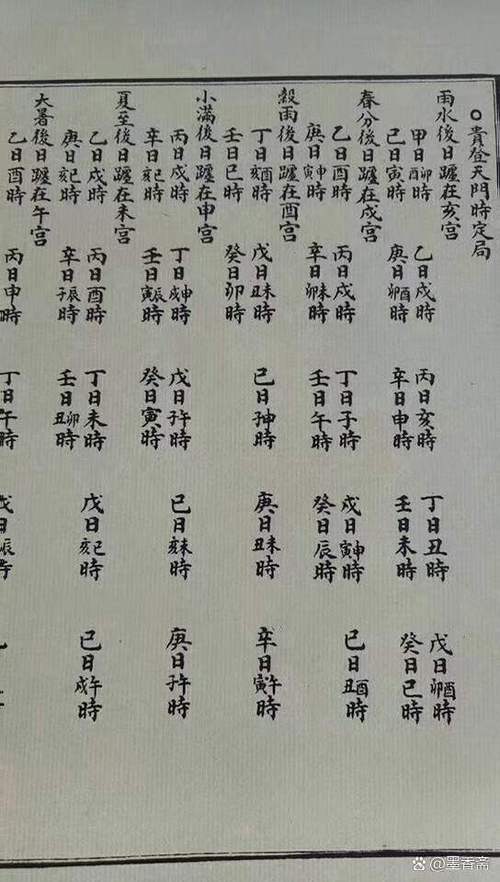 ○貴登天門時定局
雨水後日躔在亥宮
甲日卯酉時 乙日戌時 丙日亥時 丁日丑時 戊日酉卯時
己日寅時 庚日酉卯時 辛日申時 壬日未時 癸日巳時
春分後日躔在戌宮
乙日酉時 丙日戌時 丁日子時 戊日申寅時 己日酉丑時
庚日申寅時 辛日未卯時 壬日午時 癸日辰時
穀雨後日躔在酉宮
丁日酉亥時 戊日未丑時 己日申子時 庚日未丑時 辛日午寅時
壬日巳時 癸日卯時
小滿後日躔在申宮
丙日戌時 丁日申戌時 戊日午子時 己日未亥時 庚日午子時
辛日巳亥時 壬日辰寅時 癸日寅時
夏至後日躔在未宮
乙日戌時 丙日酉時 丁日未時 戊日巳亥時 己日午戌時
庚日巳亥時 辛日辰子時 壬日卯丑時
大暑後日躔在午宮
乙日酉時 丙日申時 丁日午時 戊日辰時
@墨香斋